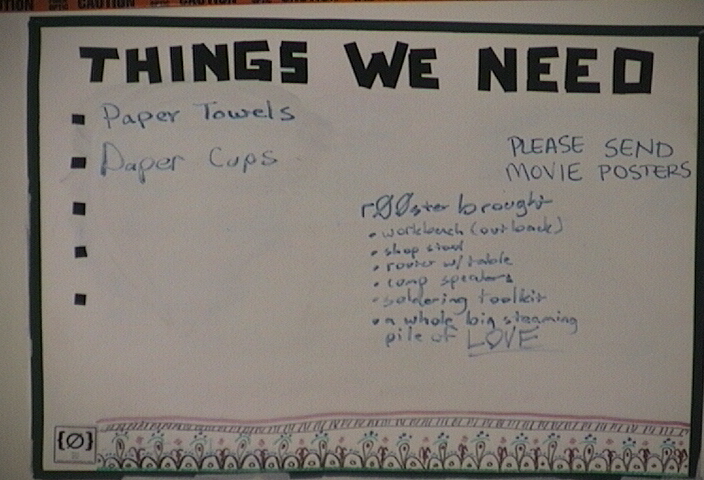 CAUTION CAUTION
THINGS WE NEED
Paper Towels
Paper Cups
PLEASE SEND
MOVIE POSTERS
rØØster brought
• workbench (out back)
• shop stool
• router w/ table
• comp speakers
• soldering toolkit
• a whole big steaming
pile of LOVE
{Ø}